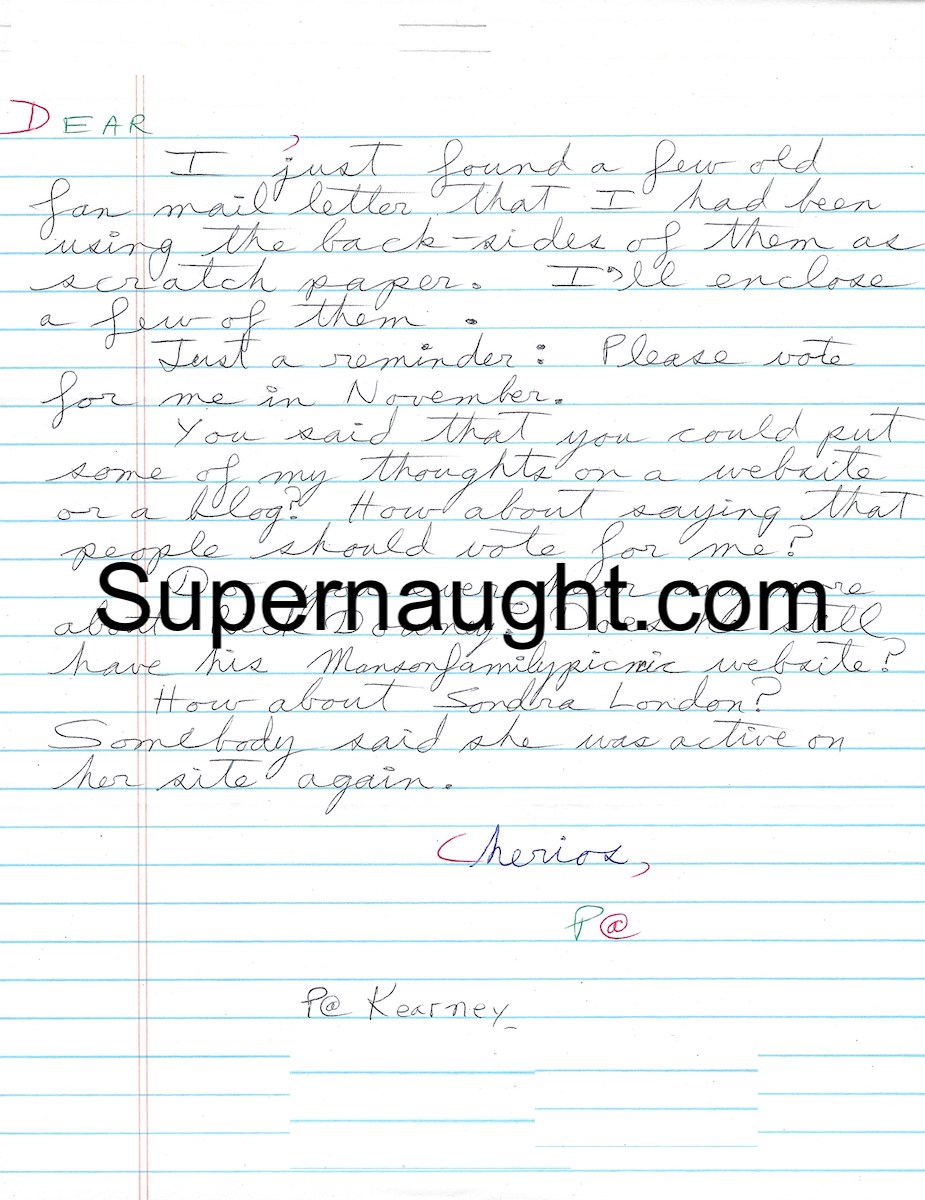 DEAR
I just found a few old
fan mail letter that I had been
using the back-sides of them as
scratch paper. I'll enclose
a few of them.
Just a reminder: Please vote
for me in November.
You said that you could put
some of my thoughts on a website
or a blog? How about saying that
people should vote for me?
Supernaught.com
about still
have his Mansonfamilypicnic website?
How about Sondra London?
Somebody said she was active on
her site again.
Cherios,
P@
P@ Kearney